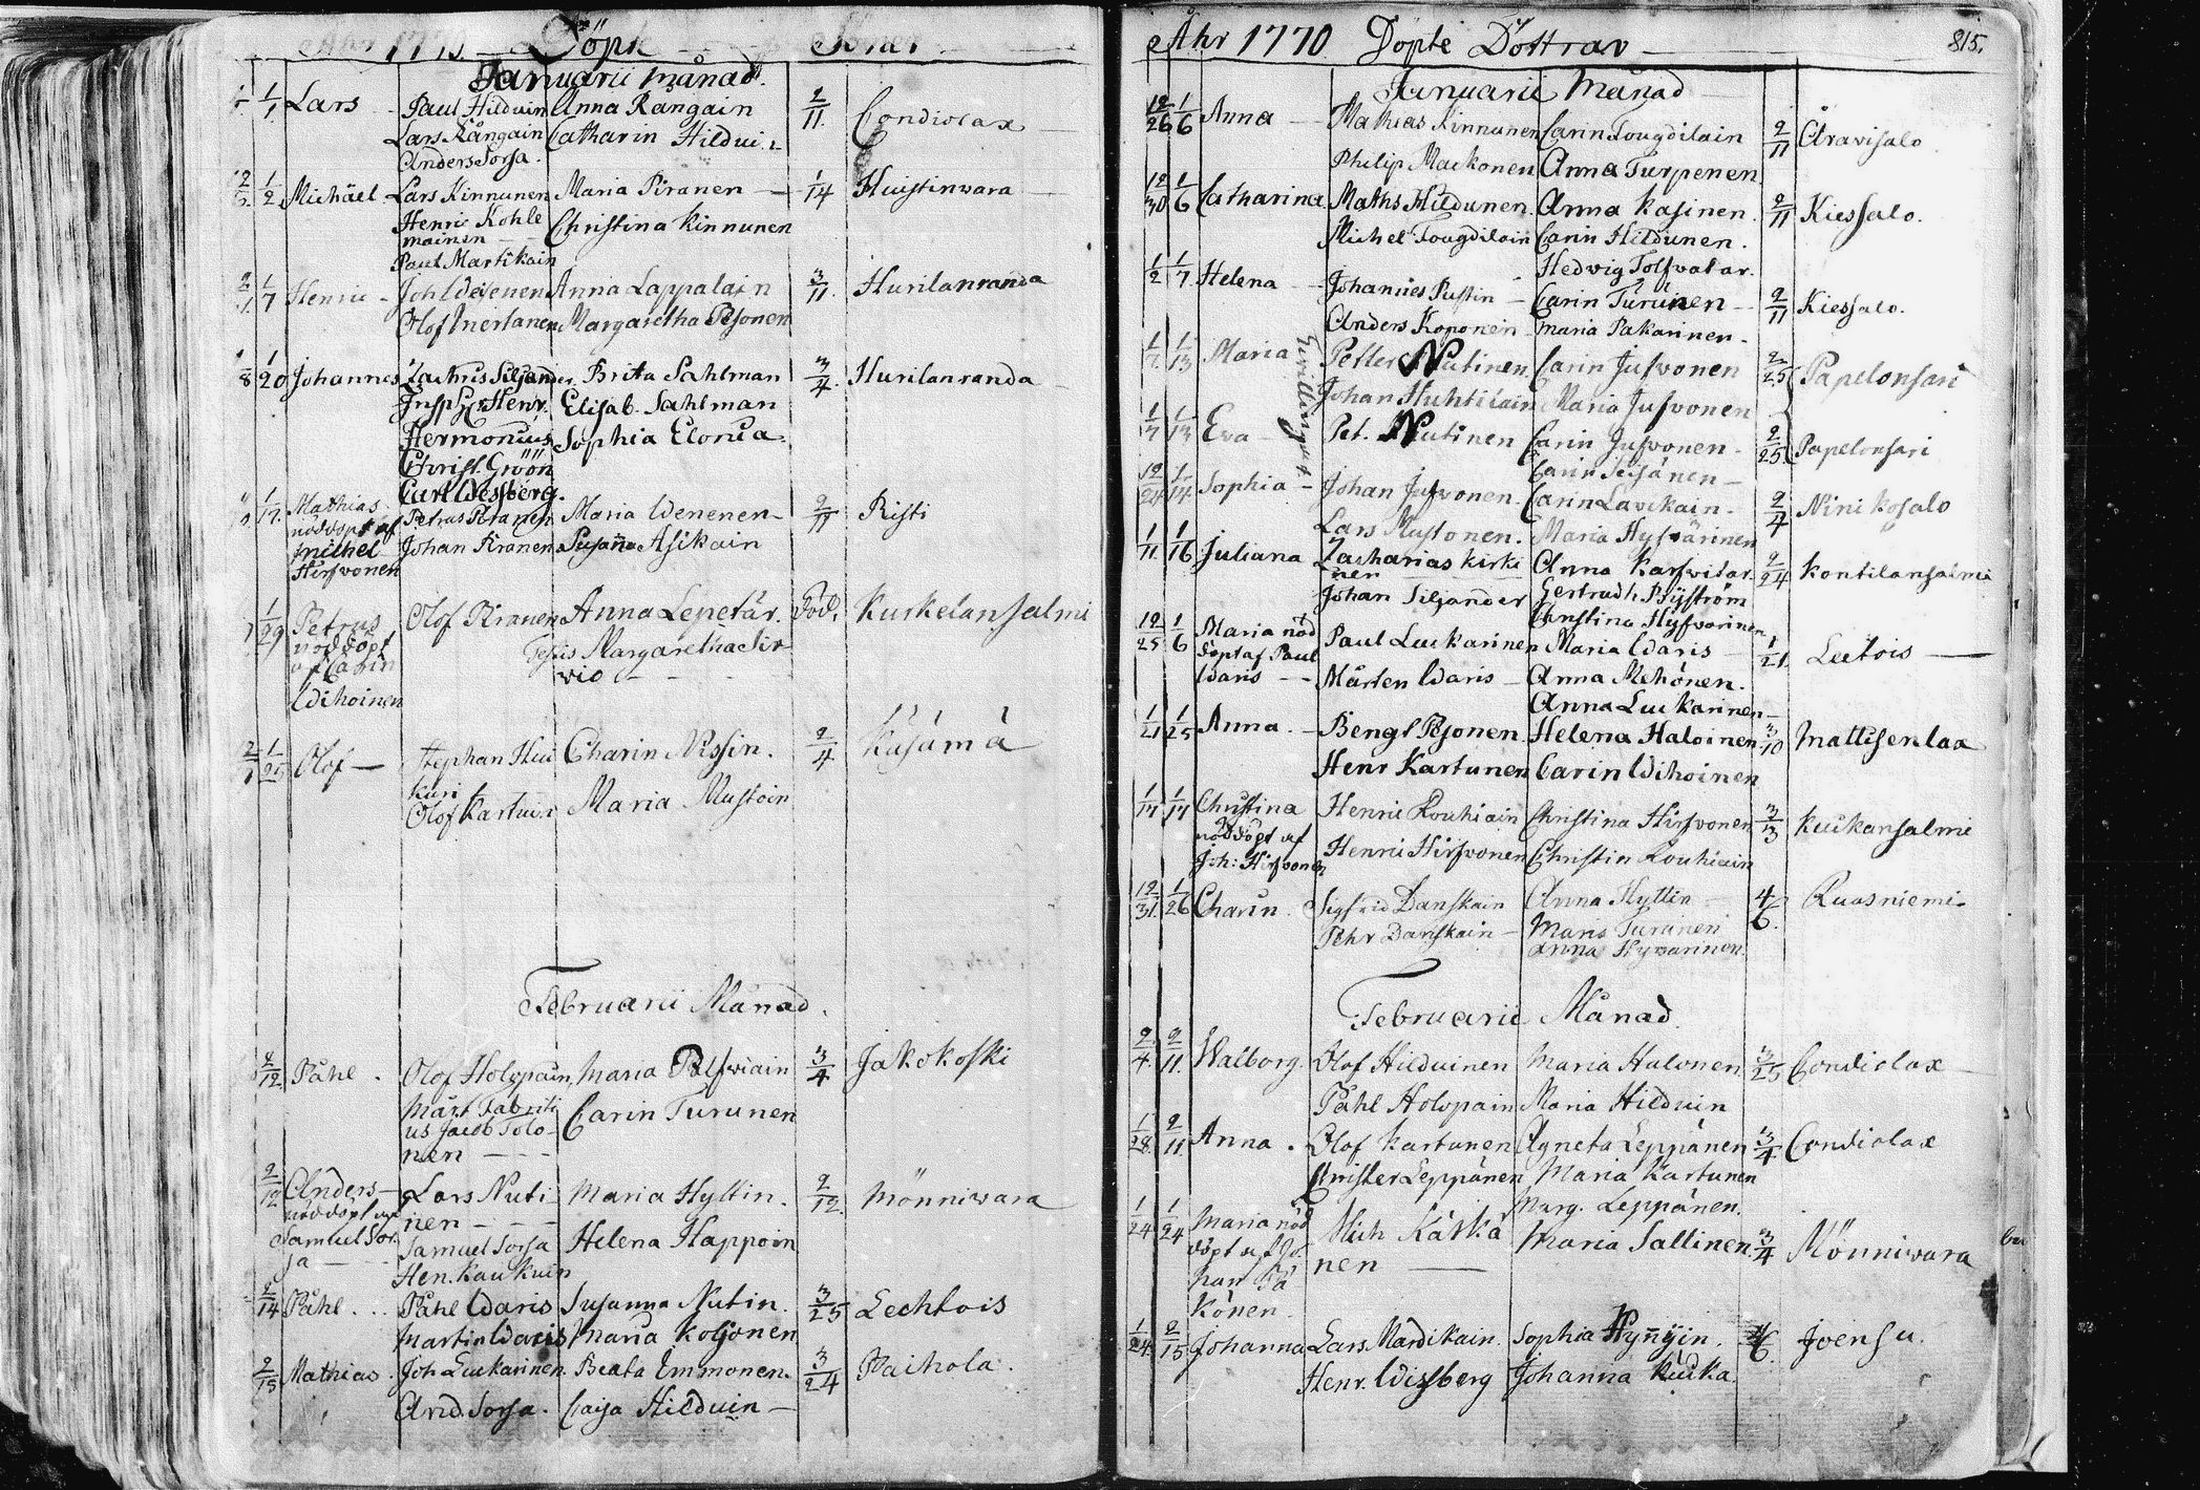 Åhr 1770. Döpte Söner
Januarii månad.
1/1 Lars Paul Hilduin Anna Rangain 2/11. Condiolax
Lars Rångain Catharin Hildui
Anders Sorsa.
1/2 Michäel Lars Kinnunen Maria Piranen 1/14 Huistinwara
Henric Kohle Christina Kinnunen
mainen
Paul Martikain
1/7 Henric Joh Anna Lappalain 3/11. Hurilanranda
Olof Margaretha Pesonen
8 1/20 Johannes Zachris Siljander. Brita Sahlman 3/4. Hurilanranda
Insp. Henr. Elisab. Sahlman
Hermonius Sophia Elonia
Christ. Gröön
Carl Wessberg.
1/17. Mathias Petrus Piranen Maria Wenenen Risti
nöddöpt af Johan Piranen Susanna Asikain
michel
Hirfvonen
1/29 Petrus Olof Piranen Anna Lepetär. Död. Kuskelansalmi
nöddöpt Testis Margaretha Sir-
af Carin wio
Wihoinen
1/25 Olof Stephan Hui Charin Nissin. 2/4 Käsämä
kuri
Olof Kartuin Maria Mustoin
Februarii Månad.
2/12. Påhl. Olof Holopain, Maria Palfwiain 3/4. Jakokoski
Mårt Fabriti Carin Turunen
us Jacob Tolo-
nen
2/12 Anders Lars Nuti Maria Hyttin. 2/12. Mönniwara
nöddöpt af nen
Samuel Sor. Samuel Sorsa Helena Happoin
sa Hen. Kaukuin
2/14 Påhl Påhl Waris Susanna Nutin. 3/25 Lechtois
Martin Waris Maria Koljonen
2/15 Mathias. Joh Luukarinen. Beata Immonen. 3/24 Paihola.
And. Sorsa. Caisa Hilduin
Åhr 1770 Döpte Döttrar 815.
Januarii Månad
12/26 1/6 Anna Mathias Kinnunen Carin Tougdilain 2/11 Aravisalo
Philip Maikonen Anna Turpenen
12/30 1/6 Catharina Maths Hildunen. Anna Kasinen. 2/11 Kiessalo.
Michel Tougdilain Carin Hildunen.
Hedvig Tolfvatar.
1/2 1/7 Helena Johannes Pustin Carin Turunen 2/11 Kiessalo.
Anders Koponen Maria Pakarinen.
1/7 1/13 Maria Tvillingar Petter Nutinen Carin Jusvonen 2/25 Papelonsari
Johan Huhtilain Maria Jusvonen
1/7 1/13 Eva Pet. Nutinen Carin Jusvonen 2/25. Papelonsari
12/24 1/14 Sophia Johan Jusvonen. Carin Lavikain. 2/4 Ninikosalo
Lars Mustonen. Maria Hyfvärinen
1/11. 1/16 Juliana Zacharias Kirki Anna Karfvitar. 2/24. Kontilansalmi
nen
Johan Siljander Gertrud
Christina Hyfvarinen
12/25 1/6 Maria nöd Paul Luukarinen Maria Waris 1/21. Leetois
döpt af Paul
Waris Mårten Waris Anna Mehönen.
Anna Luukarinen
1/21 1/25 Anna. Bengt Pesonen. Helena Haloinen 3/10 Mattisenlax
Henr Kartunen Carin Wihoinen
1/17 1/17 Christina Henric Rouhiain Christina Hirfvonen 3/13 Kuikansalmi
nöddöpt af
Joh: Hirfvonen Henric Hirfvonen Christin Rouhiain
12/31. 1/26 Charin. Sigfrid Danskain Anna Hyttin 4/6. Ruasniemi
Pehr Danskain Maria Turunen
Anna Hyvarinnen
Februarii Månad.
2/4. 2/11. Walborg. Olof Hilduinen Maria Halonen 3/25 Condiolax
Påhl Holopain Maria Hilduin
1/28. 2/11 Anna. Olof Kartunen Agneta Leppänen 3/4. Condiolax
Christer Leppänen Maria Kartunen
Marg. Leppänen.
1/24 1/24 Maria nöd Mich Kärkä Maria Sallinen. 3/4 Mönniwara
döpt af Jo- nen
han Pä
könen
1/24. 2/15 Johanna Lars Mardikain. Sophia Hynnÿin. Joensu.
Henr. Wissberg Johanna Kuika.